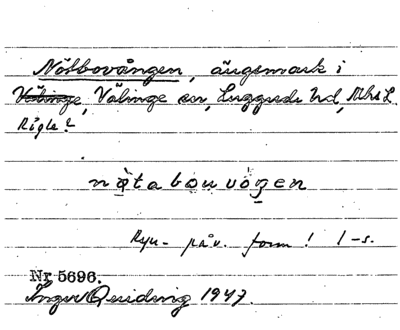 Nötbovången, ängsmark i
Välinge, Välinge sn, Luggude hd, Mhs L.
Rigle?
nøtabouvoŋen
Ryu- påv. form! 1-s.
Nr 5696.
Ingvar Quiding 1947.